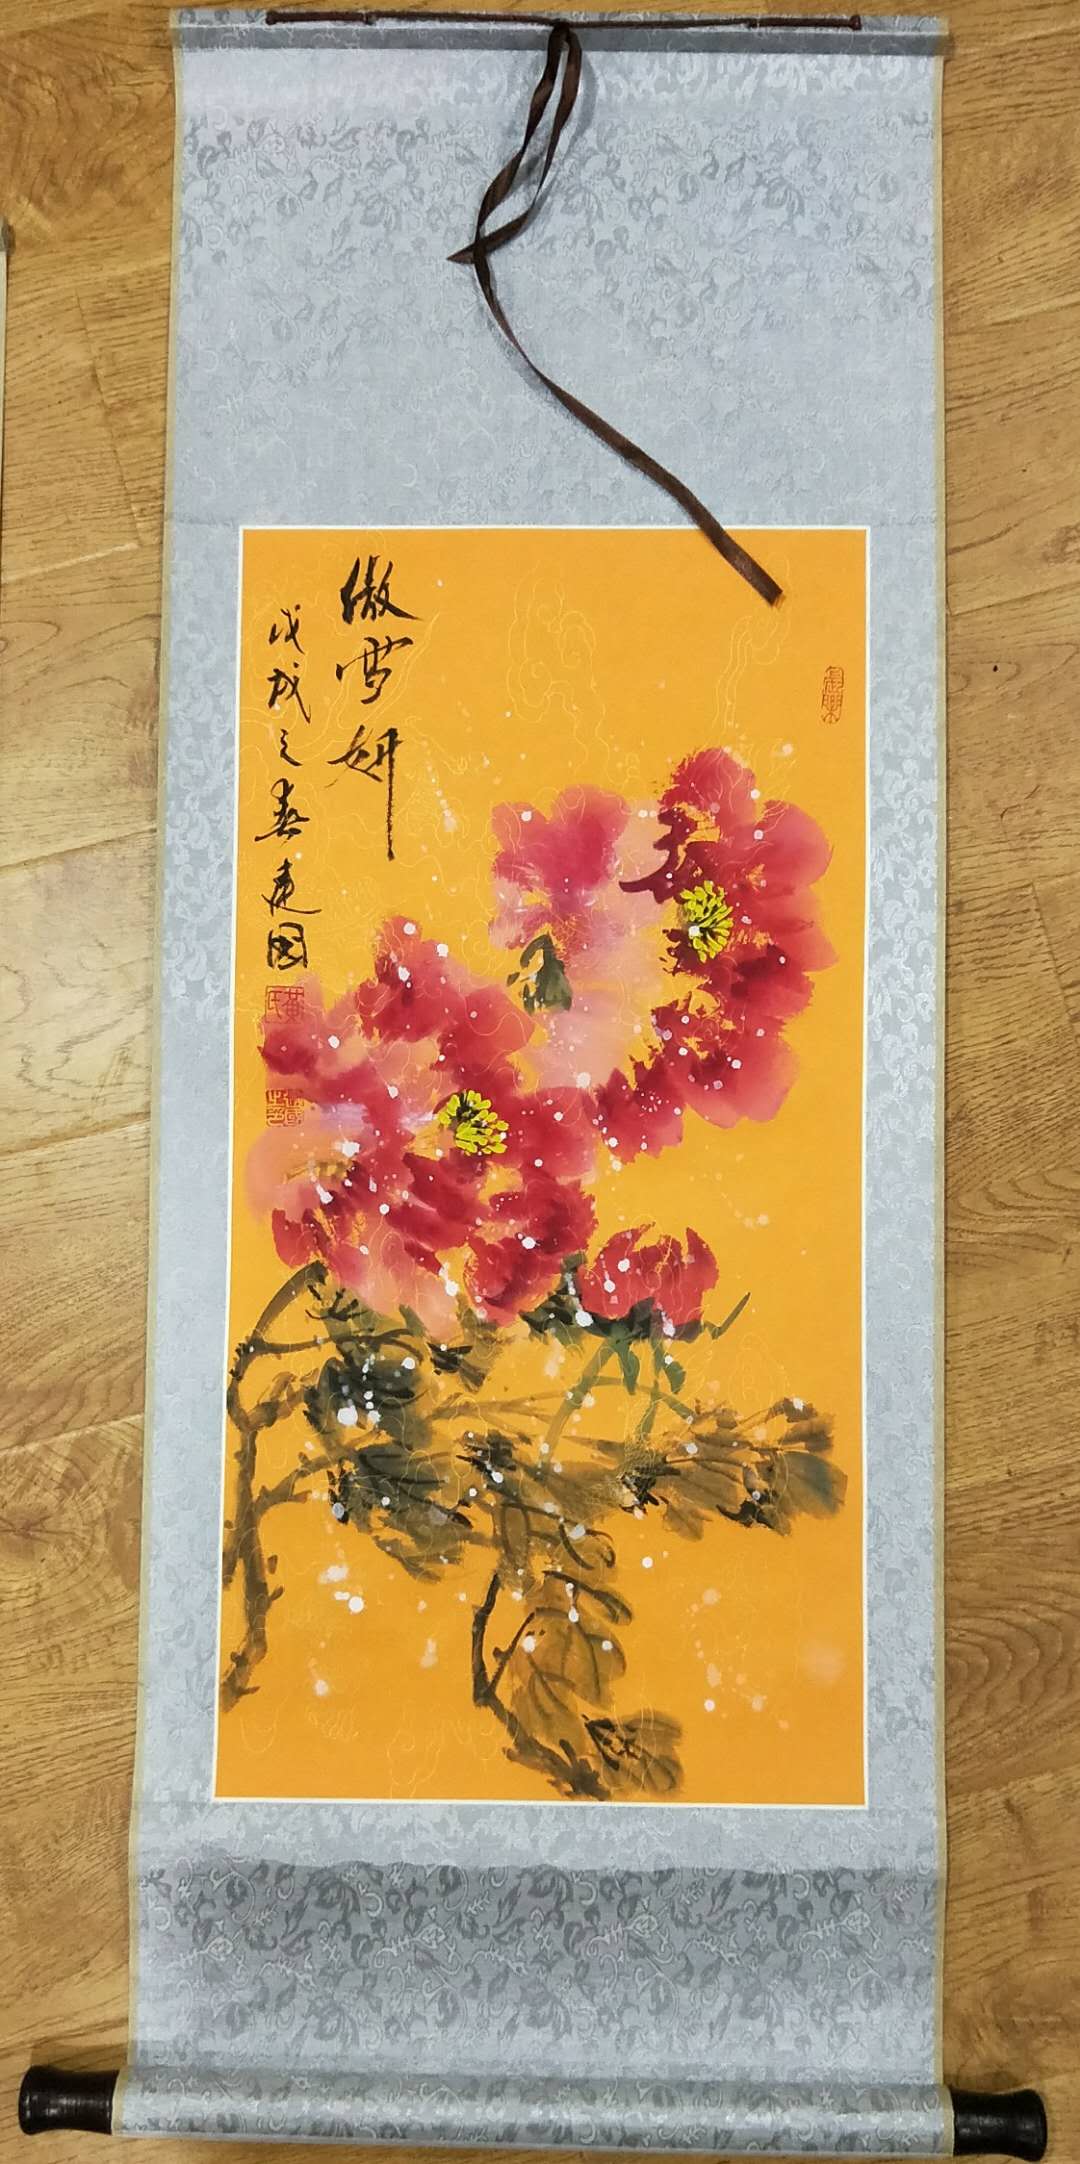 傲雪妍
戊戌之春建国
黄氏